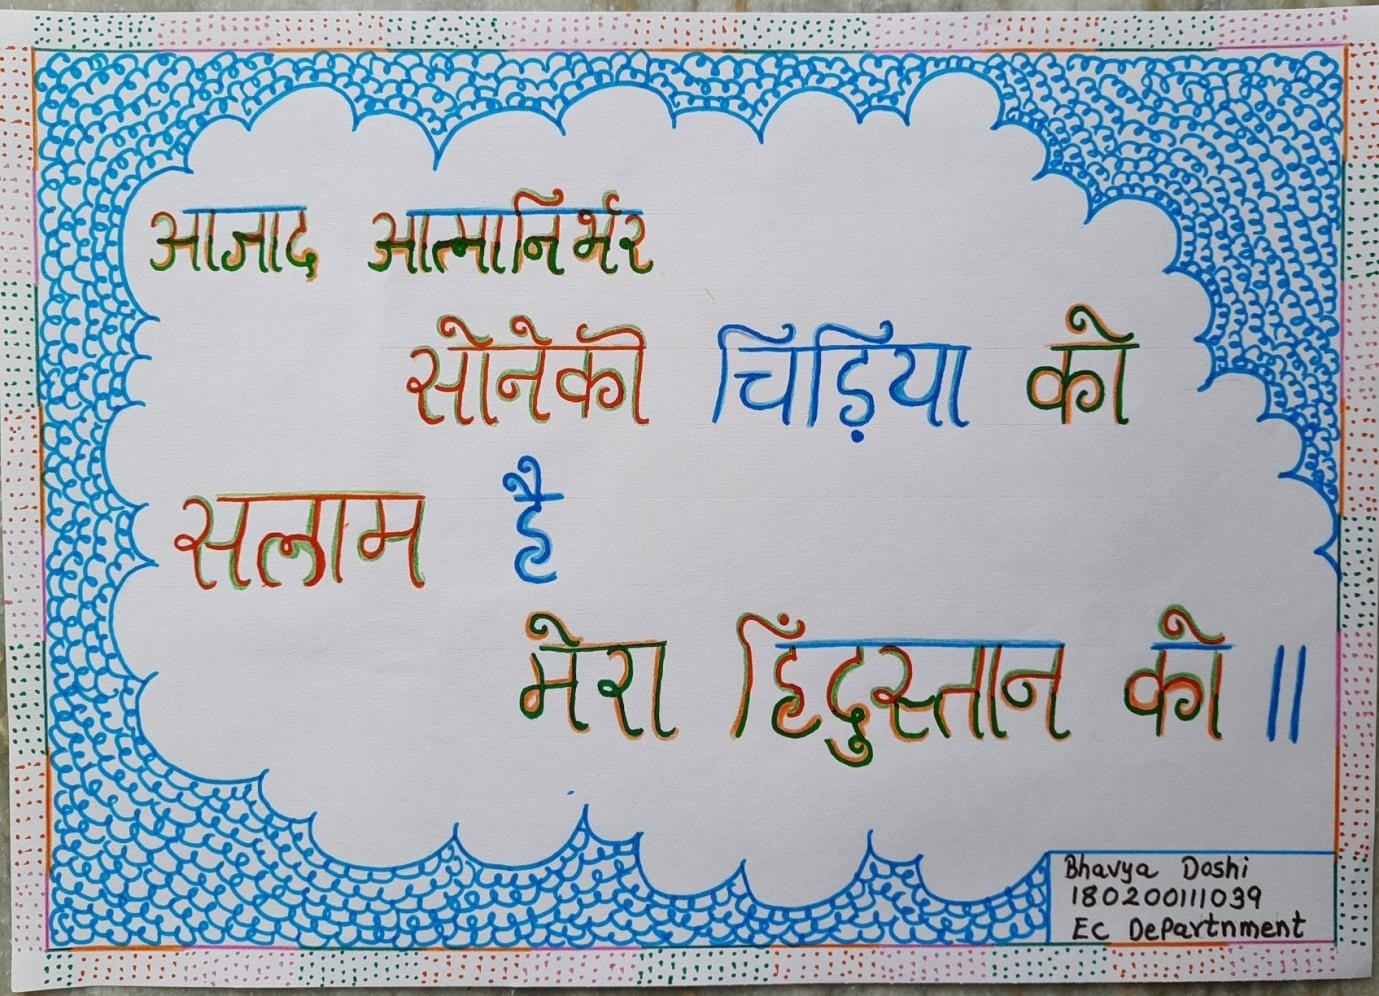 आजाद आत्मानिर्भर
सोनेकी चिड़िया को
सलाम है
मेरा हिंदुस्तान को ॥
Bhavya Doshi
180200111039
EC Departnment